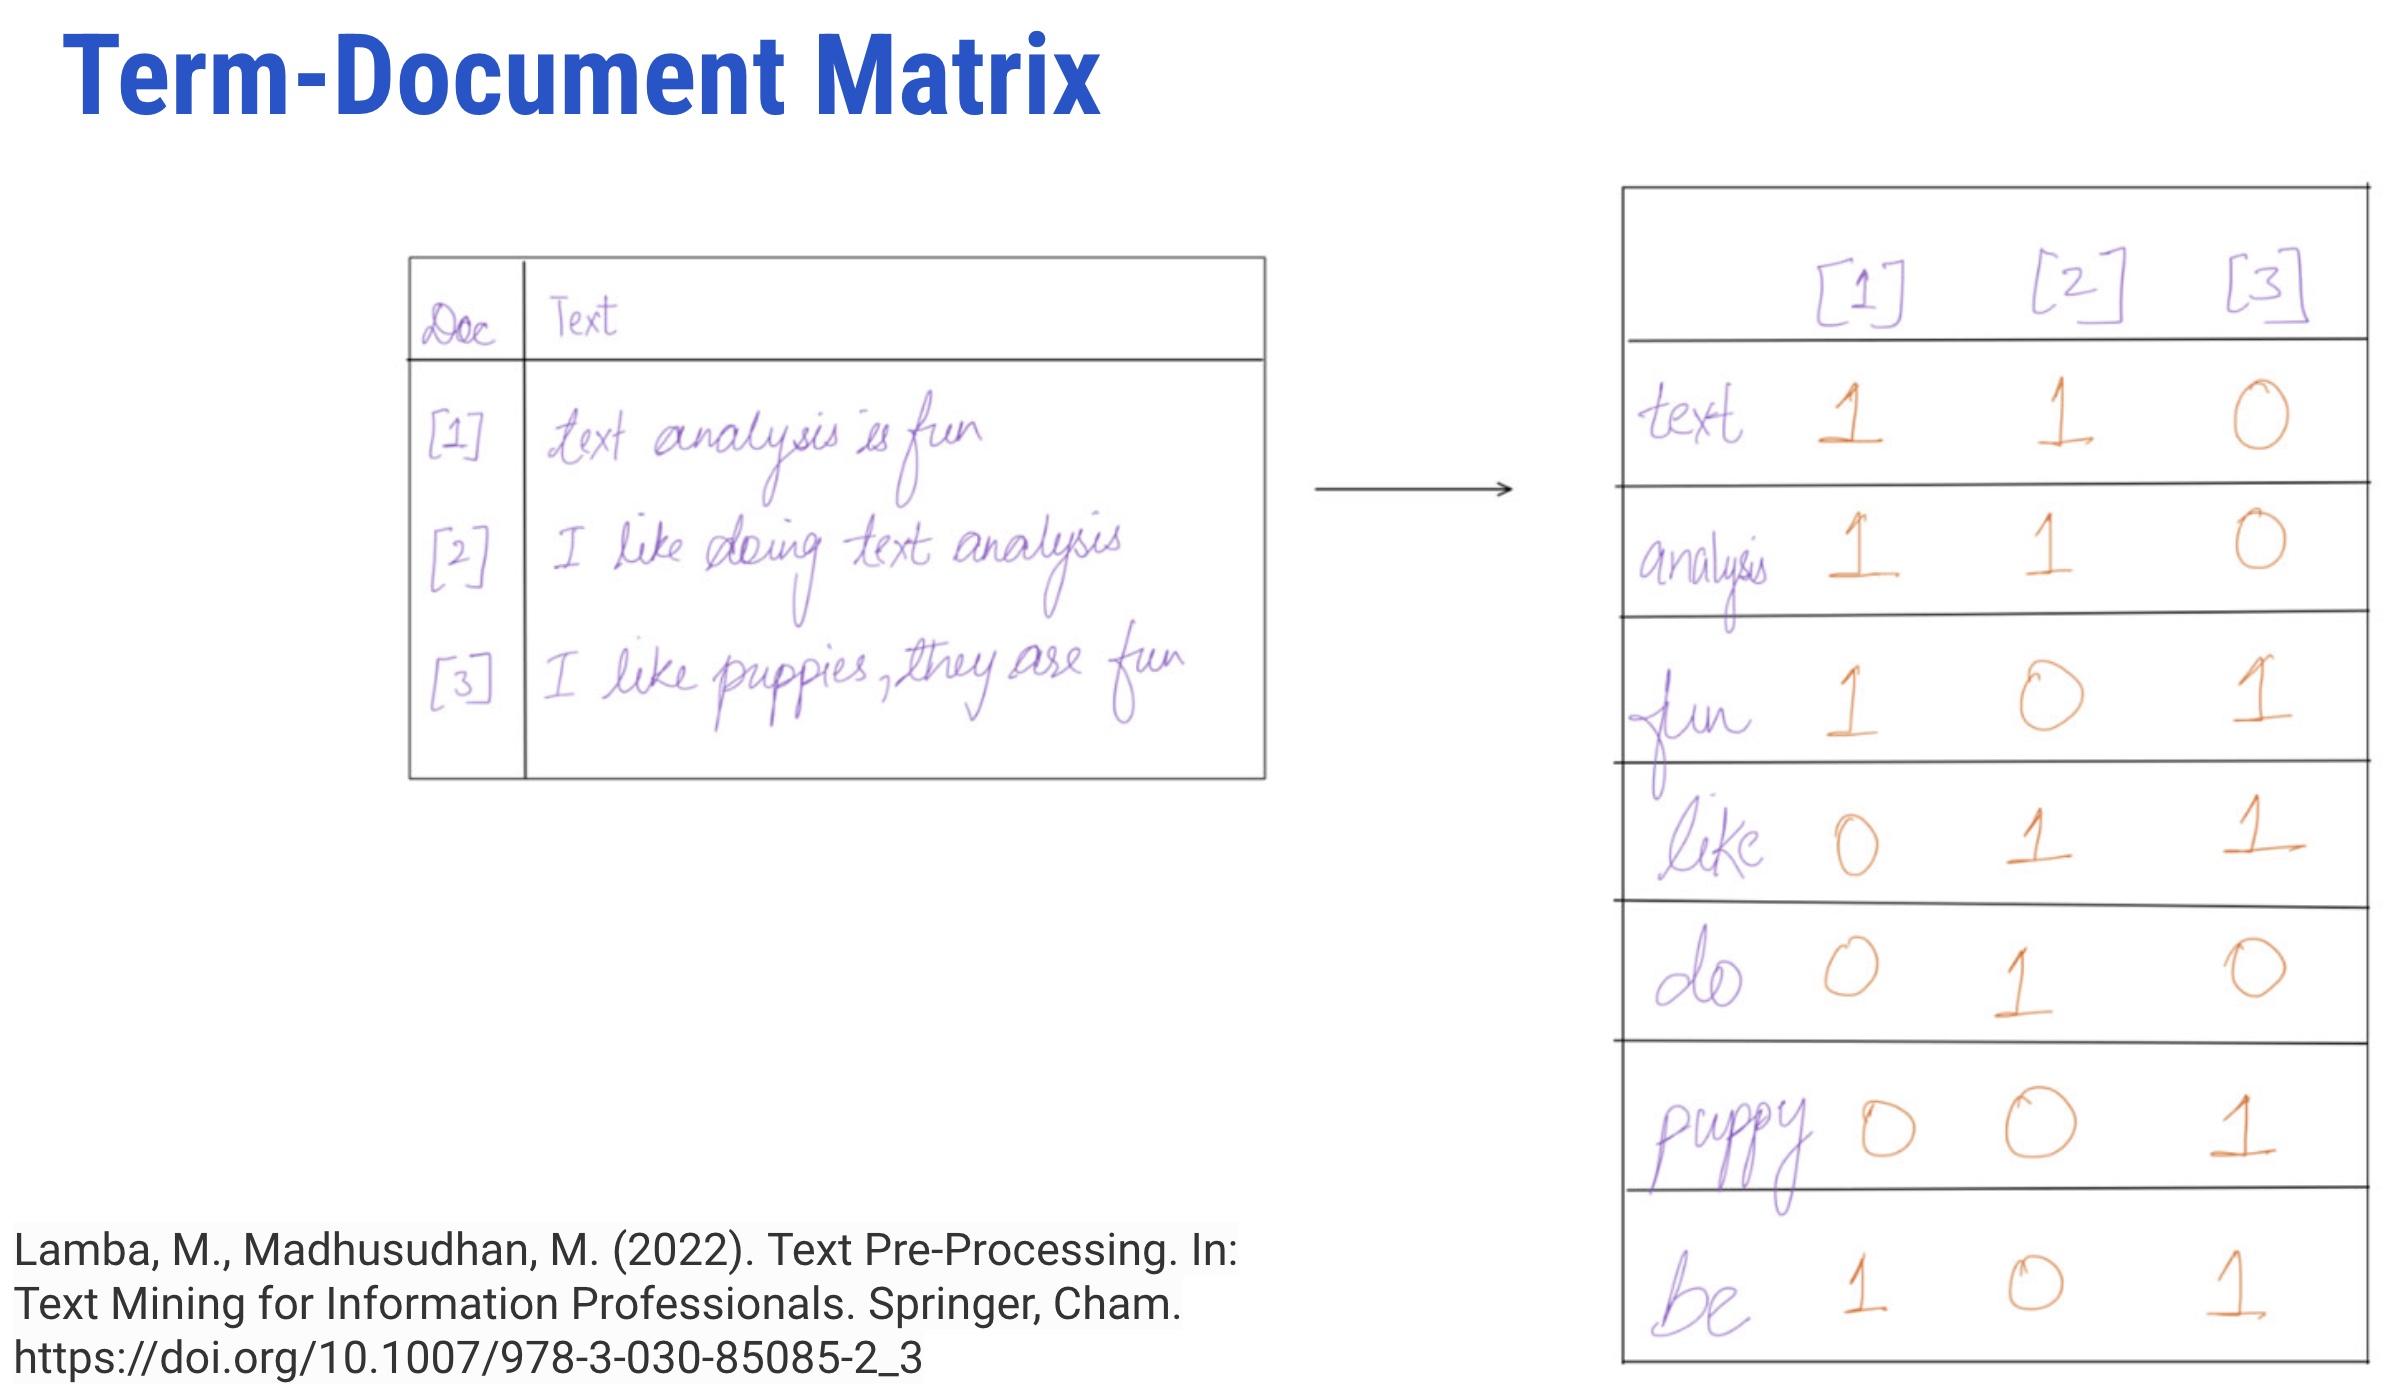 Term-Document Matrix
Doc Text
[1] text analysis is fun
[2] I like doing text analysis
[3] I like puppies, they are fun
[1] [2] [3]
text 1 1 0
analysis 1 1 0
fun 1 0 1
like 0 1 1
do 0 1 0
puppy 0 0 1
be 1 0 1
Lamba, M., Madhusudhan, M. (2022). Text Pre-Processing. In:
Text Mining for Information Professionals. Springer, Cham.
https://doi.org/10.1007/978-3-030-85085-2_3